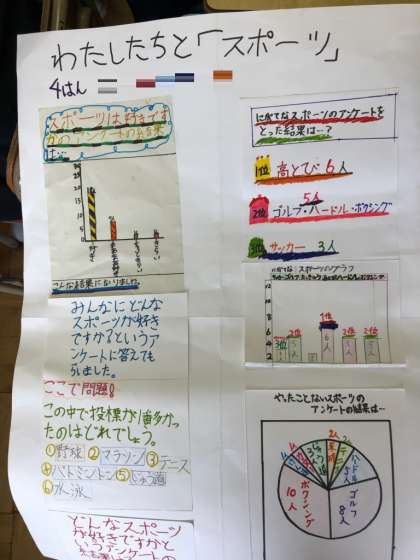 わたしたちと「スポーツ」
4はん
スポーツは好きです
かのアンケートの結果
は…
こんな結果になりました。
みんなにどんな
スポーツが好き
ですか?というア
ンケートに答えても
らいました。
ここで問題!
この中で投標が1番多かっ
たのはどれでしょう。
①野球 ②マラソン ③テニス
④バドミントン ⑤じゅう道
⑥水泳
どんなスポーツ
が好きですかと
にがてなスポーツのアンケートを
とった結果は…?
1位 高とび 6人
5人
2位 ゴルフ・ハードル・ボクシング
3位 サッカー 3人
にがてなスポーツのグラフ
12
10
8
6
4
2
1位
6人
2位 2位
やったことないスポーツの
アンケートの結果は…
ハードル
5人
ゴルフ
8人
ボクシング
10人